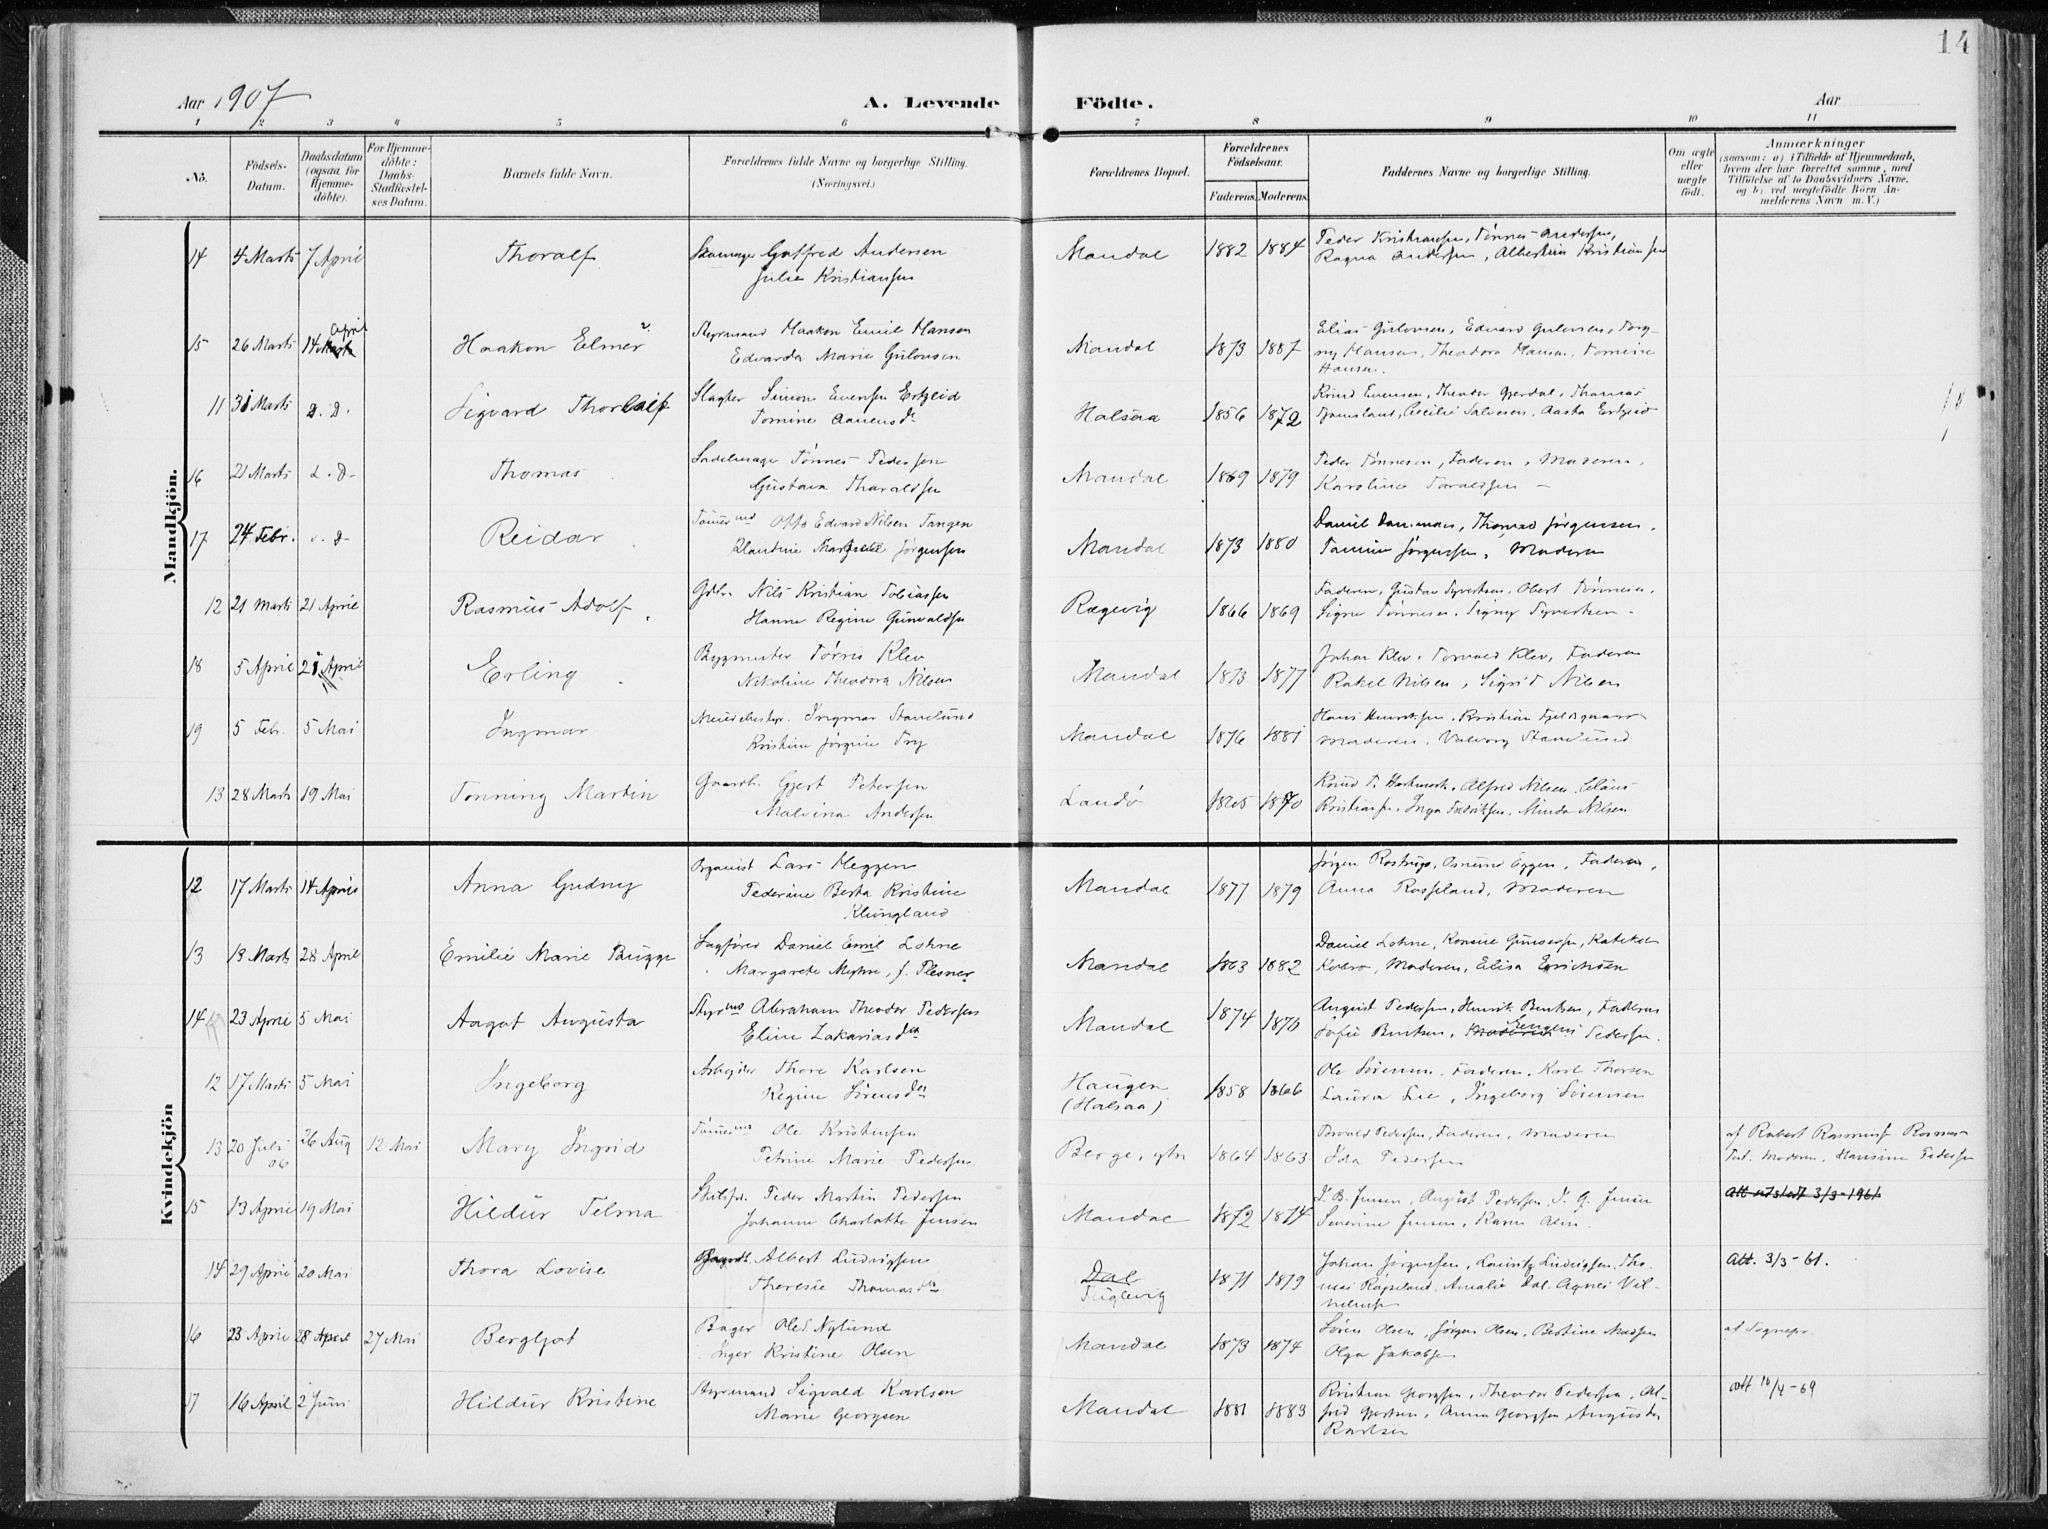 14
Aar 1907
A. Levende
Födte.
Aar
1 2 3 4 5 6 7 8 9 10 11
No.
Födsels-Datum.
Daabsdatum (ogsaa for Hjemme-döbte).
For Hjemme-döbte: Daabs-Stadfæstel-ses Datum.
Barnets fulde Navn.
Forældrenes fulde Navne og borgerlige Stilling. (Næringsvei.)
Forældrenes Bopæl.
Forældrenes Födselsaar.
Faderens. Moderens.
Faddernes Navne og borgerlige Stilling.
Om ægte eller uægte födt.
Anmærkninger
(saasom: a) i Tilfælde af Hjemmedaab, hvem der har forrettet samme, med Tilföielse af to Daabsvidners Navne, og b) ved uægtefödte Börn Anmelderens Navn m. V.)
Mandkjön.
14 4 Marts 7 April Thoralf Gotfred Andersen Mandal 1882 1884 Peder Kristiansen, Tönnes Andersen,
Julie Kristiansen Ragna Andersen, Albertine Kristiansen
15 26 Marts 14 April Haakon Elmer Styrmand Haakon Emil Hansen Mandal 1873 1887 Elias Gulovsen, Edvard Gulovsen, Torg-
Edvarda Marie Gulovsen ny Hansen, Theodora Hansen, Tomine
Hansen.
11 31 Marts d. D. Sigvard Thorleif Slagter Simon Evensen Halsaa 1856 1872 Knud Evensen, Theodor Gjerdal, Thomas
Tomine Aanensdr Tjomsland, Cecilie Salvesen, Aasta
16 21 Marts d. D. Thomas Sadelmager Tönnes Pedersen Mandal 1869 1879 Peder Tönnesen, Faderen, Moderen,
Gustava Tharaldsen Karoline Toraldsen
17 24 Febr. d. D. Reidar Tömermd Otto Edvard Nilsen Tangen Mandal 1873 1880 Daniel Danman, Thomas Jörgensen,
Klandine Jörgensen Tomine Jörgensen, Moderen
12 21 Marts 21 April Rasmus Adolf Gdbr. Nils Kristian Tobiassen Rægevig 1866 1869 Faderen, Gustav Syvertsen, Obert Tönnesen,
Hanne Regine Gunvaldsen Signe Tönnesen, Signy Syvertsen
18 5 April 21 April Erling Bygmester Törris Klev Mandal 1873 1877 Johan Klev, Torvald Klev, Faderen
Nikoline Theodora Nilsen Rakel Nilsen, Sigrid Nilsen
19 5 Febr. 5 Mai Ingmar Ingmar Stanelund Mandal 1876 1881 Hans Henriksen, Kristian Fjeldsgaard
Kristine Jörgine Try Moderen, Valborg Stanelund
13 28 Marts 19 Mai Tönning Martin Gaardb. Gjert Petersen Landö 1865 1870 Knud T. Hartmark, Alfred Nilsen, Claus
Malvina Andersen Kristiansen, Inga Fredriksen, Minda Nilsen
Kvindekjön
12 17 Marts 14 April Anna Gudny Organist Lars Heggen Mandal 1877 1879 Jörgen Rostrup, Osmund Eggen, Faderen,
Pederine Berta Kristine Anna Rosseland, Moderen
Klungland
13 13 Marts 28 April Emilie Marie Bugge Sagförer Daniel Emil Lohne Mandal 1863 1882 Daniel Lohne, Konsul Gundersen,
Margarete Myhre, f. Plesner Moderen, Elisa Erichsen
14 23 April 5 Mai Aagot Augusta Styrmd Abraham Theodor Pedersen Mandal 1874 1876 August Pedersen, Henrik Bentsen, Faderen
Eline Zakariasdtr Sofie Bentsen, Pedersen.
12 17 Marts 5 Mai Ingeborg Arbejder Thore Karlsen Haugen 1858 1866 Ole Sörensen, Faderen, Karl Thorsen
Regine Sörensdtr (Halsaa) Laura Lie, Ingeborg Sörensen
13 20 Juli 06 26 Aug 12 Mai Mary Ingrid Tömermd Ole Kristensen Berge, ytr. 1864 1863 Torvald Pedersen, Faderen, Moderen af Robert Rasmussen
Petrine Marie Pedersen Ida Pedersen Moderen, Hansine Pedersen
15 13 April 19 Mai Hildur Telma Skibsfr. Peder Martin Pedersen Mandal 1872 1874 J. B. Jensen, August Pedersen, J. G. Jensen Att utstedt 3/3-1961
Johanne Charlotte Jensen Severine Jensen, Karen Olsen
14 29 April 20 Mai Thora Lovise Albert Ludvigsen Dal 1871 1879 Johan Jörgensen, Lauritz Ludvigsen, Tho- Att. 3/3-61.
Theresie Thomasdtr Fuglevig Amalie Dal, Agnes Vil-
helmsen
16 23 April 28 April 27 Mai Bergljot Bager Oled Nylund Mandal 1873 1874 Sören Olsen, Jörgen Olsen, Bestine Madsen af Sognepr.
Inger Kristine Olsen Olga Jakobsen
17 16 April 2 Juni Hildur Kristine Styrmand Sigvald Karlsen Mandal 1881 1883 Kristian Georgsen, Theodor Pedersen, Al- att 16/4-69
Marie Georgsen fred Gjertsen, Anna Georgsen, Augusta
Karlsen